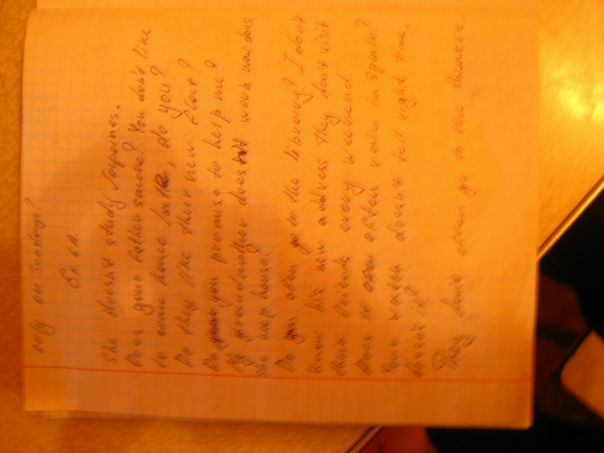 only on Sundays?
Ex 61
She doesn't study Japanes.
Does your father smoke? You don't like
to come home late, do you?
Do they like their new flat?
Do you promise to help me?
My grandmother does not work now does
she keep house?
Do you often go to the library? I don't
know his new address They don't visit
their friends every weekend
Does it often rain in
Your watch doesn't tell right time,
doesn't it?
They don't often go to the theatre